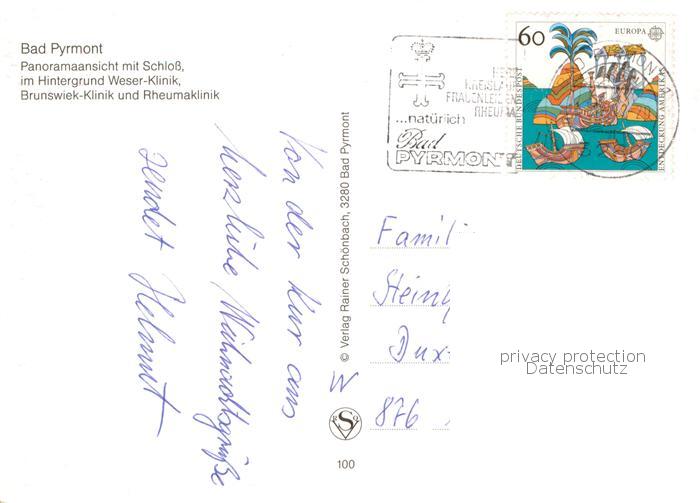 Bad Pyrmont
Panoramaansicht mit Schloß,
im Hintergrund Weser-Klinik,
Brunswiek-Klinik und Rheumaklinik
60
EUROPA
DEUTSCHE BUNDESPOST
ENTDECKUNG AMERIKAS
...natürlich
Bad
PYRMONT
HERZ
KREISLAUF
FRAUENLEIDEN
RHEUMA
Von der Kur aus
herzliche
sendet Helmut
© Verlag Rainer Schönbach, 3280 Bad Pyrmont
W
100
Famili
Stein
Dux
876
privacy protection
Datenschutz